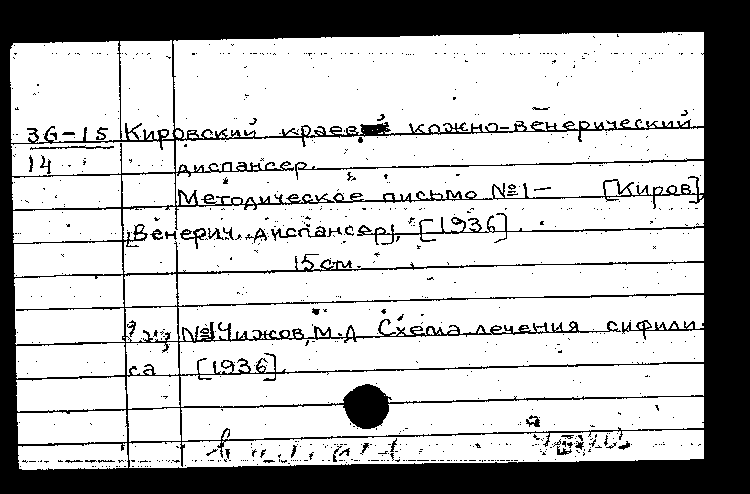 36-15 Кировский краевой кожно-венерический
14 диспансер.
Методическое письмо №1— [Киров],
[Венерич. диспансер], [1936].
15 см.
№1 Чижов, М.Д. Схема лечения сифили-
са [1936].